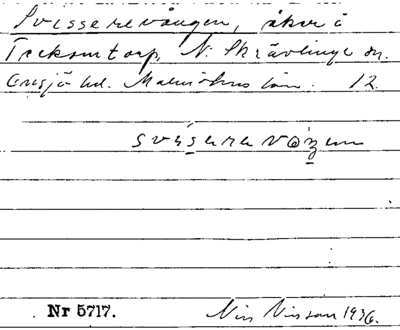 Svisserevången, åker i
Toksmtorp, N. Skrävlinge sn.
Oxsjö hd. Malmöhus län. 12.
svisərevåŋen
Nr 5717.
Nils Nilsson 1936.